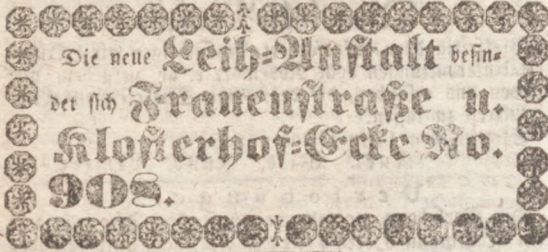 Die neue Leih-Anstalt befin-
det sich Frauenstraße u.
Klosterhof-Ecke No.
908.